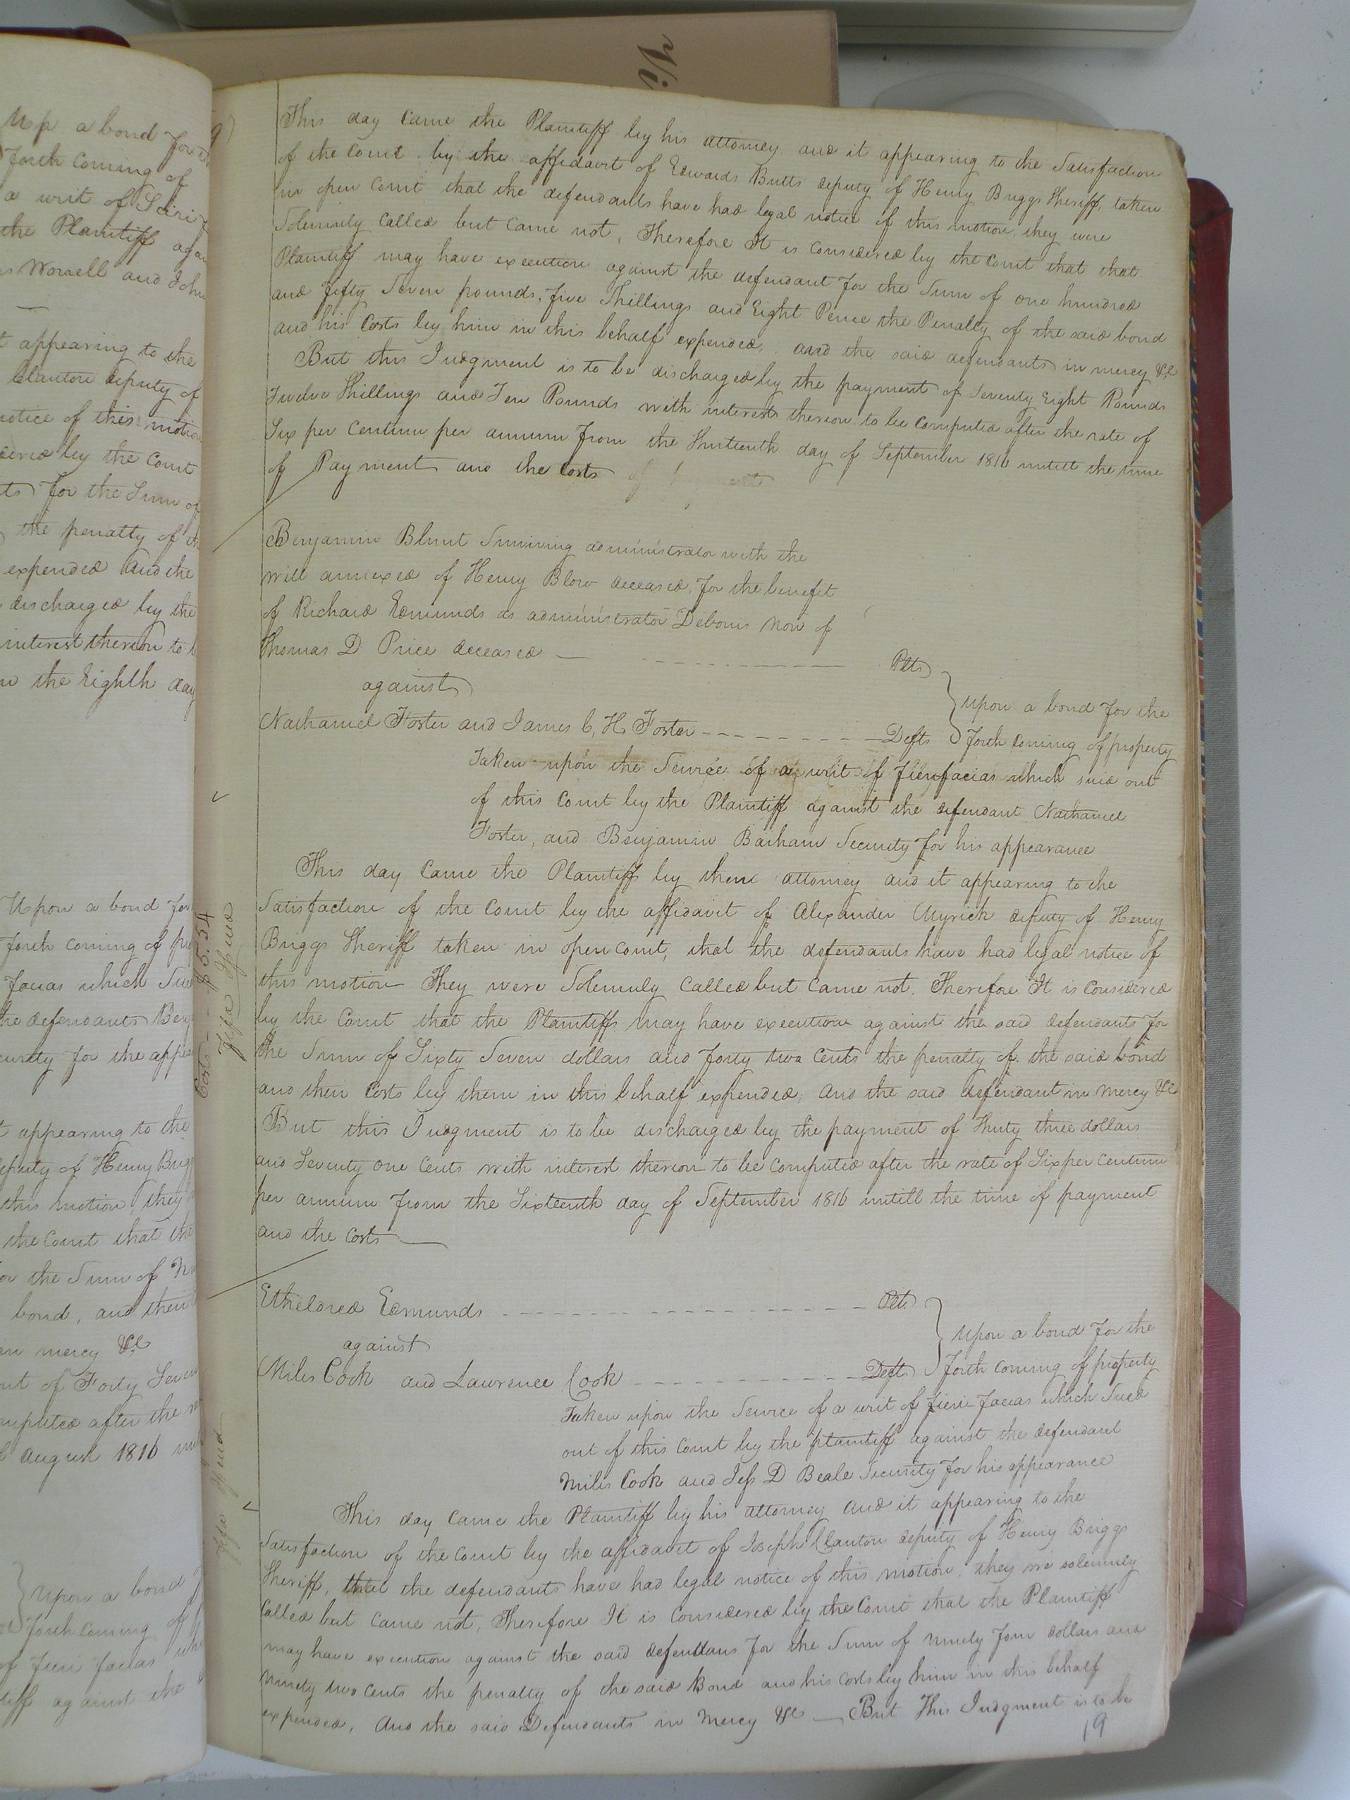 Up a bond for th
forth coming of
a writ of Scirif
the Plaintiff agai
Worrell and John
t appearing to the
Clanton deputy of
notice of this motion
dered by the Court
ts for the Sum of
the penalty of th
expended And the
discharged by the
interest thereon to b
the Eighth day
Upon a bond for
forth coming of pr
Facias which Sue
the defendants Ben
curity for the appea
t appearing to the
deputy of Henry Brig
this motion they
the Court that the
or the Sum of
bond, and their
in mercy &c
nt of Forty Seven
mputed after the ra
August 1816
Upon a bond
forth coming of
of Fieri facias wh
tiff against the
9)
This day Came the Plaintiff by his attorney and it appearing to the Satisfaction
of the Court by the affidavit of Edwards Butts deputy of Henry Briggs Sheriff, taken
in open Court that the defendants have had legal notice of this motion, they were
Solemnly Called but Came not, Therefore It is Considered by the Court that that
Plaintiff may have execution against the defendant for the Sum of one hundred
and fifty Seven pounds, five Shillings and Eight Pence the Penalty of the said bond
and his Costs by him in this behalf expended, and the said defendants in mercy &c
But this Judgment is to be discharged by the payment of Seventy Eight Pounds
Twelve Shillings and Ten Pounds with interest thereon to be Computed after the rate of
Six per Centum per annum from the Thirteenth day of September 1816 untill the time
of Payment and the Costs
Benjamin Blunt Surviving administrator with the
will annexed of Henry Blow deceased, for the benefit
of Richard Edmunds as administrator Debonis Non of
Thomas D Price deceased — Plts
against
Upon a bond for the
Nathaniel Foster and James C, H Foster - - - - - - - - - Defts forth Coming of property
Taken upon the Service of a writ of fieri facias which sued out
of this Court by the Plaintiff against the defendant Nathaniel
Foster, and Benjamin Barham Security for his appearance
This day Came the Plaintiff by their attorney and it appearing to the
Satisfaction of the Court by the affidavit of Alexander Myrick deputy of Henry
Briggs Sheriff taken in open Court, that the defendants have had legal notice of
this motion They were Solemnly Called but Came not. Therefore It is Considered
by the Court that the Plaintiffs may have execution against the said defendants for
the Sum of Sixty Seven dollars and forty two Cents the penalty of the said bond
and their Costs by them in this behalf expended, and the said defendant in mercy &c
But this Judgment is to be discharged by the payment of Thirty three dollars
and Seventy one Cents with interest thereon to be Computed after the rate of Six per Centum
per annum from the Sixteenth day of September 1816 untill the time of payment
and the Costs —
Costs — $5.54
Fifa Issued
Ethelored Edmunds - - - - - - - - - - Plts
against
Upon a bond for the
Miles Cook and Lawrence Cook - - - - - - - - - - Defts forth Coming of property
Taken upon the Service of a writ of fieri facias which Sued
out of this Court by the plaintiff against the defendant
Miles Cook and Jess D Beale Security for his appearance
Fifa Issued
This day came the Plaintiff by his attorney And it appearing to the
Satisfaction of the Court by the affidavit of Joseph Clanton deputy of Henry Briggs
Sheriff, that the defendants have had legal notice of this motion, they were solemnly
Called but Came not, Therefore It is Considered by the Court that the Plaintiff
may have execution against the said defendans for the Sum of ninety four dollars and
ninety two Cents the penalty of the said Bond and his Costs by him in this behalf
expended, And the said Defendants in Mercy &c — But This Judgment is to be
19